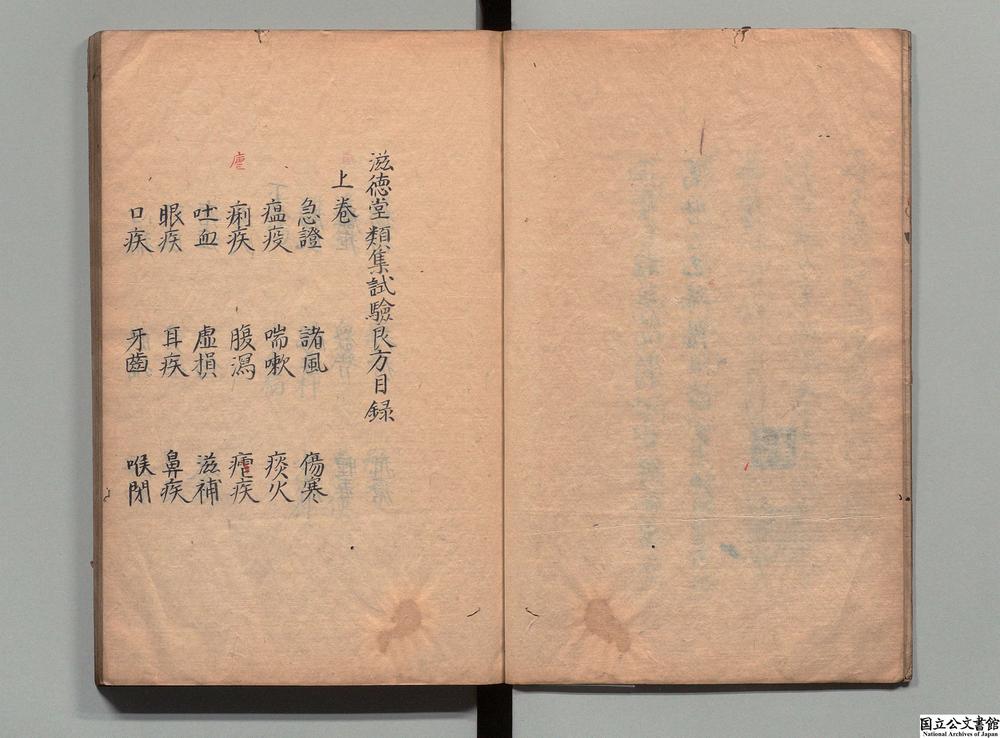 滋德堂類集試驗良方目録
上巻
急證 諸風 傷寒
瘟疫 喘嗽 痰火
痢疾 腹瀉 瘧疾
吐血 虛損 滋補
眼疾 耳疾 鼻疾
口疾 牙齒 喉閉
国立公文書館
National Archives of Japan